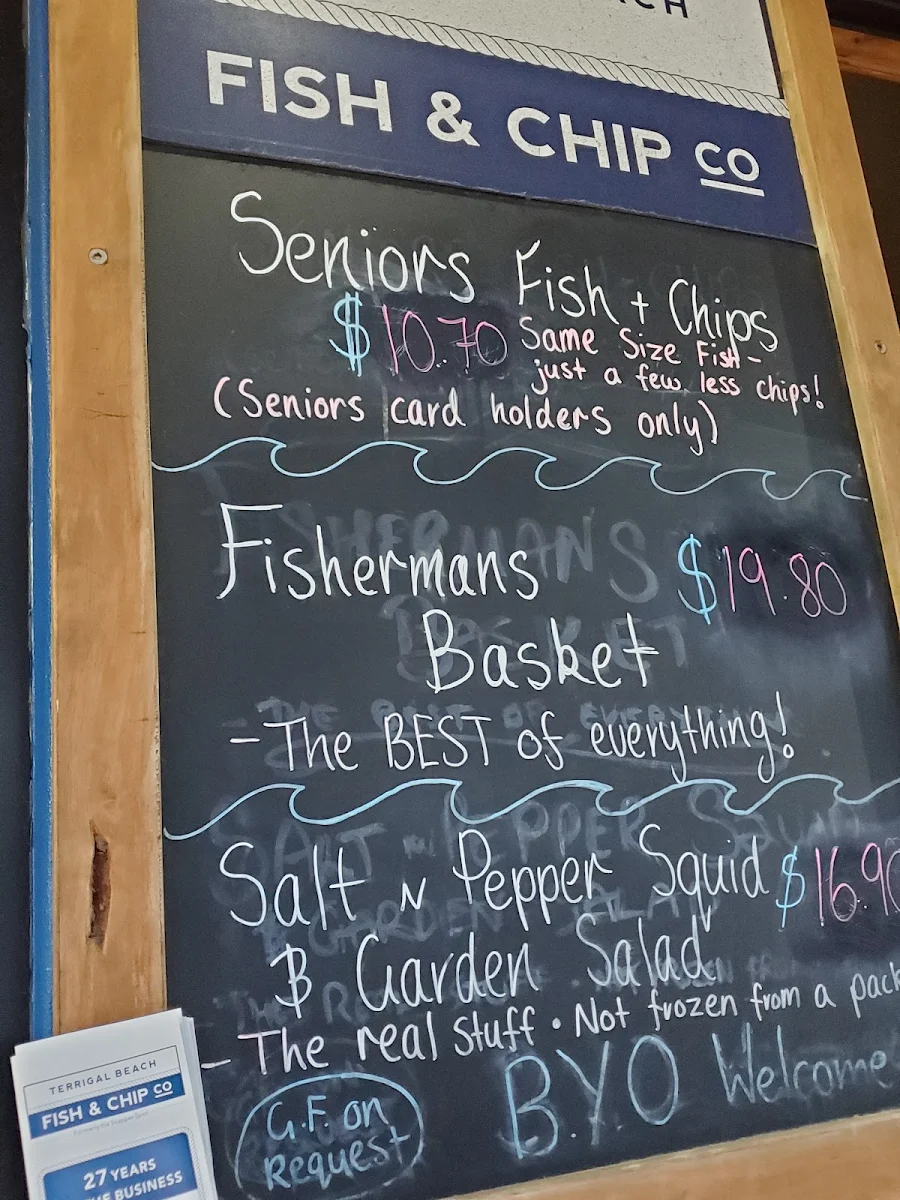 FISH & CHIP CO
Seniors Fish + Chips
$10.70 Same Size Fish -
just a few less chips!
(Seniors card holders only)
Fishermans $19.80
Basket
- The BEST of everything!
Salt N Pepper Squid $16.90
& Garden Salad
- The real stuff • Not frozen from a pack
G.F. on
Request
B.Y.O Welcome
TERRIGAL BEACH
FISH & CHIP CO
27 YEARS
BUSINESS